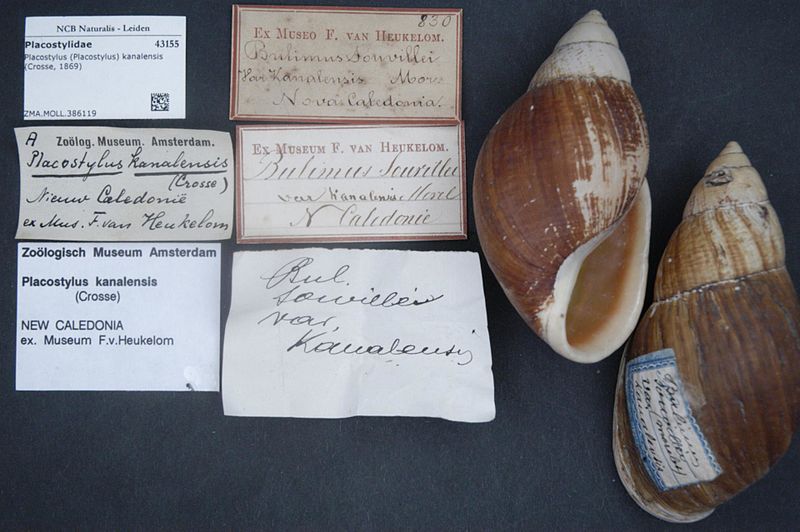 NCB Naturalis - Leiden
Placostylidae 43155
Placostylus (Placostylus) kanalensis
(Crosse, 1869)
ZMA.MOLL.386119
A Zoölog. Museum. Amsterdam.
Placostylus kanalensis
(Crosse)
Nieuw Caledonië
ex Mus. F. van Heukelom
Zoölogisch Museum Amsterdam
Placostylus kanalensis
(Crosse)
NEW CALEDONIA
ex. Museum F.v.Heukelom
830
Ex Museo F. van Heukelom.
Bulimus Souvillei
Var Kanalensis More
Nova Caledonia.
Ex Museum F. van Heukelom.
Bulimus Souvillei
var Kanalensis Morel
N Caledonie
Bul.
souvillei
var.
Kanalensis
Bulimus